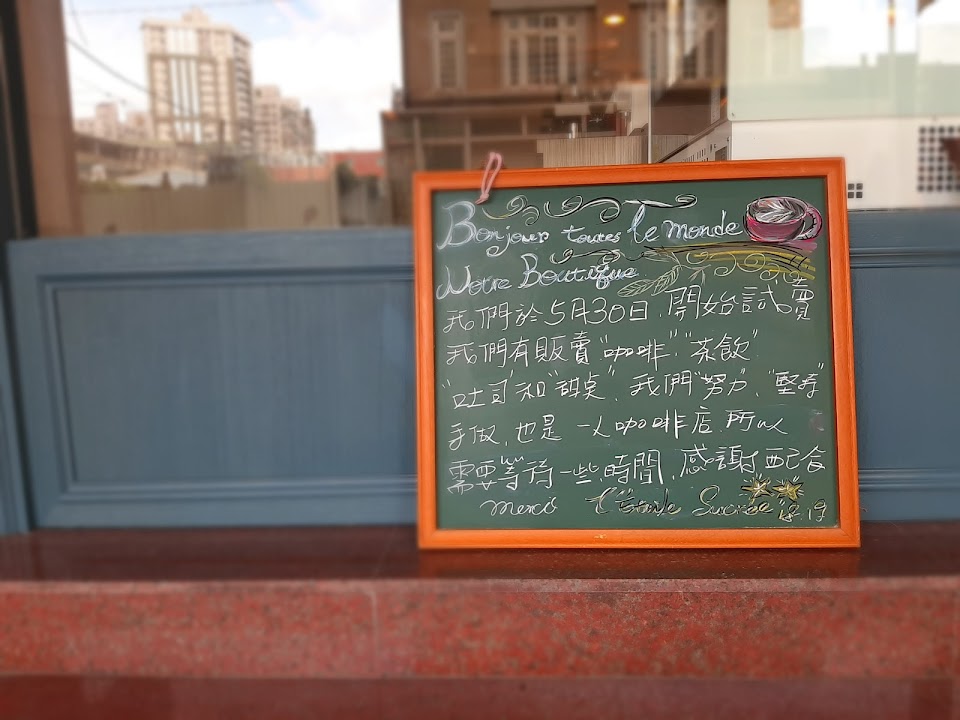 Bonjour toutes le monde
Notre Boutique
我們於5月30日.開始試賣
我們有販賣"咖啡""茶飲"
"吐司"和"甜桌".我們"努力"."堅持"
手做.也是一人咖啡店.所以
需要等待一些時間.感謝配合
merci l'Étoile Sucrée 18.19